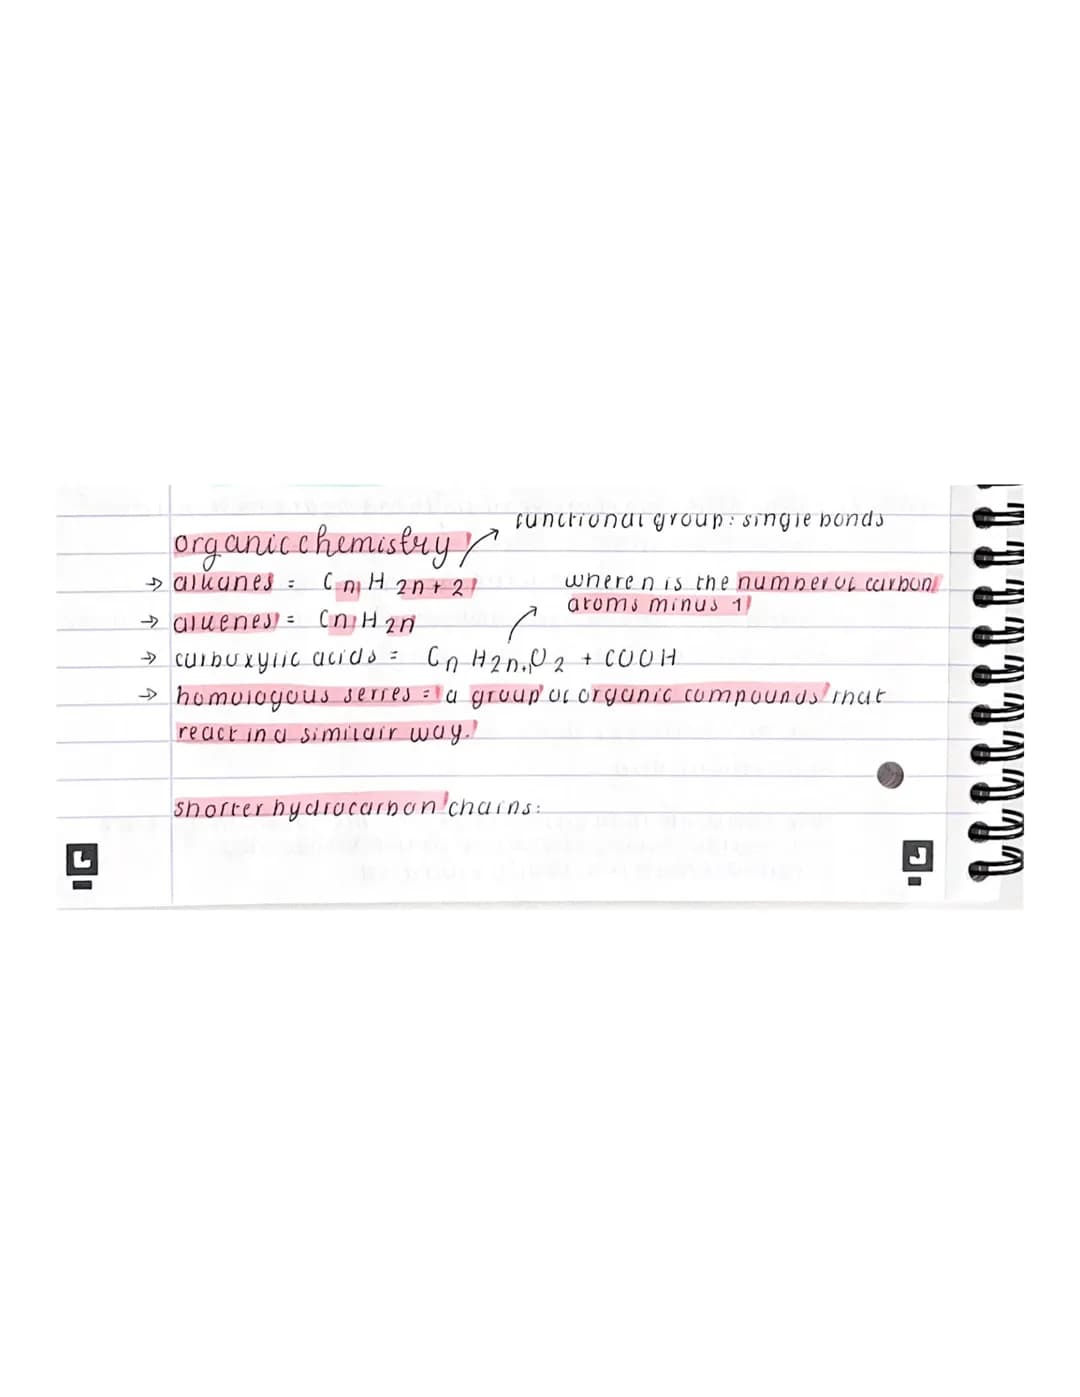 functional group: single bonds
organic chemistry
→ alkanes = CnH2n+2
where n is the number of carbon
atoms minus 1
→ alkenes = CnH2n
→ carboxylic acids = CnH2n+1O2 + COOH
→ homologous series = a group of organic compounds that
react in a similair way.
shorter hydrocarbon chains: